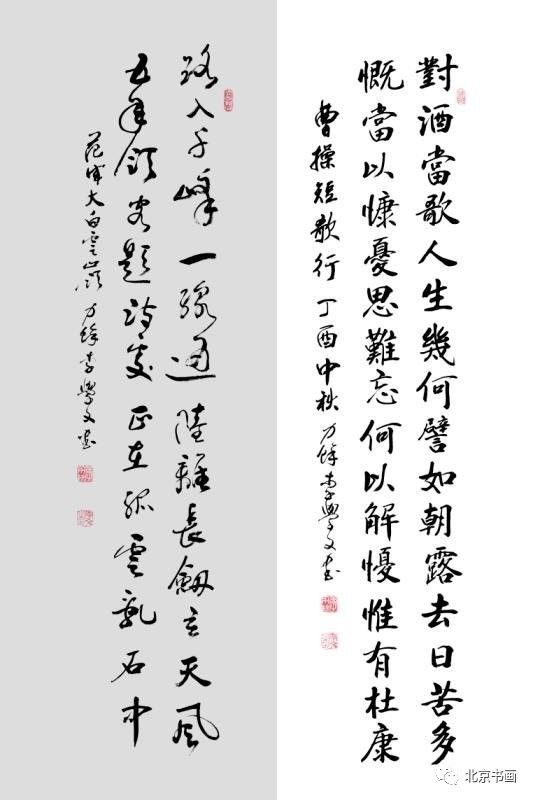 對酒當歌人生幾何譬如朝露去日苦多
慨當以慷憂思難忘何以解懮惟有杜康
曹操短歌行 丁酉中秋 李學文書
路入千峰一線通陸離長劍立天風
五年領客題詩處正在孤雲亂石中
范成大白雲嶺 李學文書
北京书画